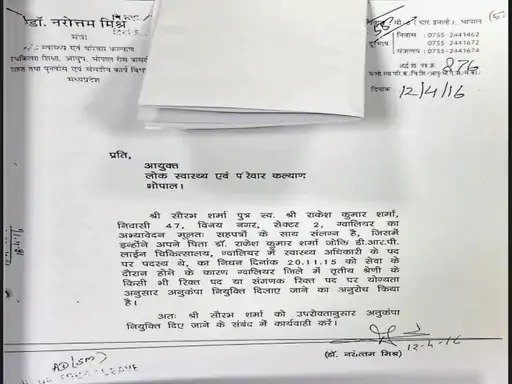 डॉ. नरोत्तम मिश्र
मंत्री
स्वास्थ्य एवं परिवार कल्याण
चिकित्सा शिक्षा, आयुष, भोपाल गैस त्रासदी
राहत तथा पुनर्वास एवं संसदीय कार्य विभाग
मध्यप्रदेश
(चार इमली), भोपाल
निवास : 0755 2441462
दूरभाष : 0755 2441628
मंत्रालय : 0755 2441674
876
दिनांक 12/4/16
प्रति,
आयुक्त
लोक स्वास्थ्य एवं परिवार कल्याण
भोपाल।
श्री सौरभ शर्मा पुत्र स्व. श्री राकेश कुमार शर्मा,
निवासी 47, विजय नगर, सेक्टर 2, ग्वालियर का
अभ्यावेदन मूलतः सहपत्रों के साथ संलग्न है, जिसमें
इन्होंने अपने पिता डॉ. राकेश कुमार शर्मा जोकि डी.आर.पी.
लाईन चिकित्सालय, ग्वालियर में स्वास्थ्य अधिकारी के पद
पर पदस्थ थे, का निधन दिनांक 20.11.15 को सेवा के
दौरान होने के कारण ग्वालियर जिले में तृतीय श्रेणी के
किसी भी रिक्त पद या संगणक रिक्त पद पर योग्यता
अनुसार अनुकंपा नियुक्ति दिलाए जाने का अनुरोध किया
है।
अतः श्री सौरभ शर्मा को उपरोक्तानुसार अनुकंपा
नियुक्ति दिए जाने के संबंध में कार्यवाही करें।
12-4-16
(डॉ. नरोत्तम मिश्र)
AD(SM)
LEAVE